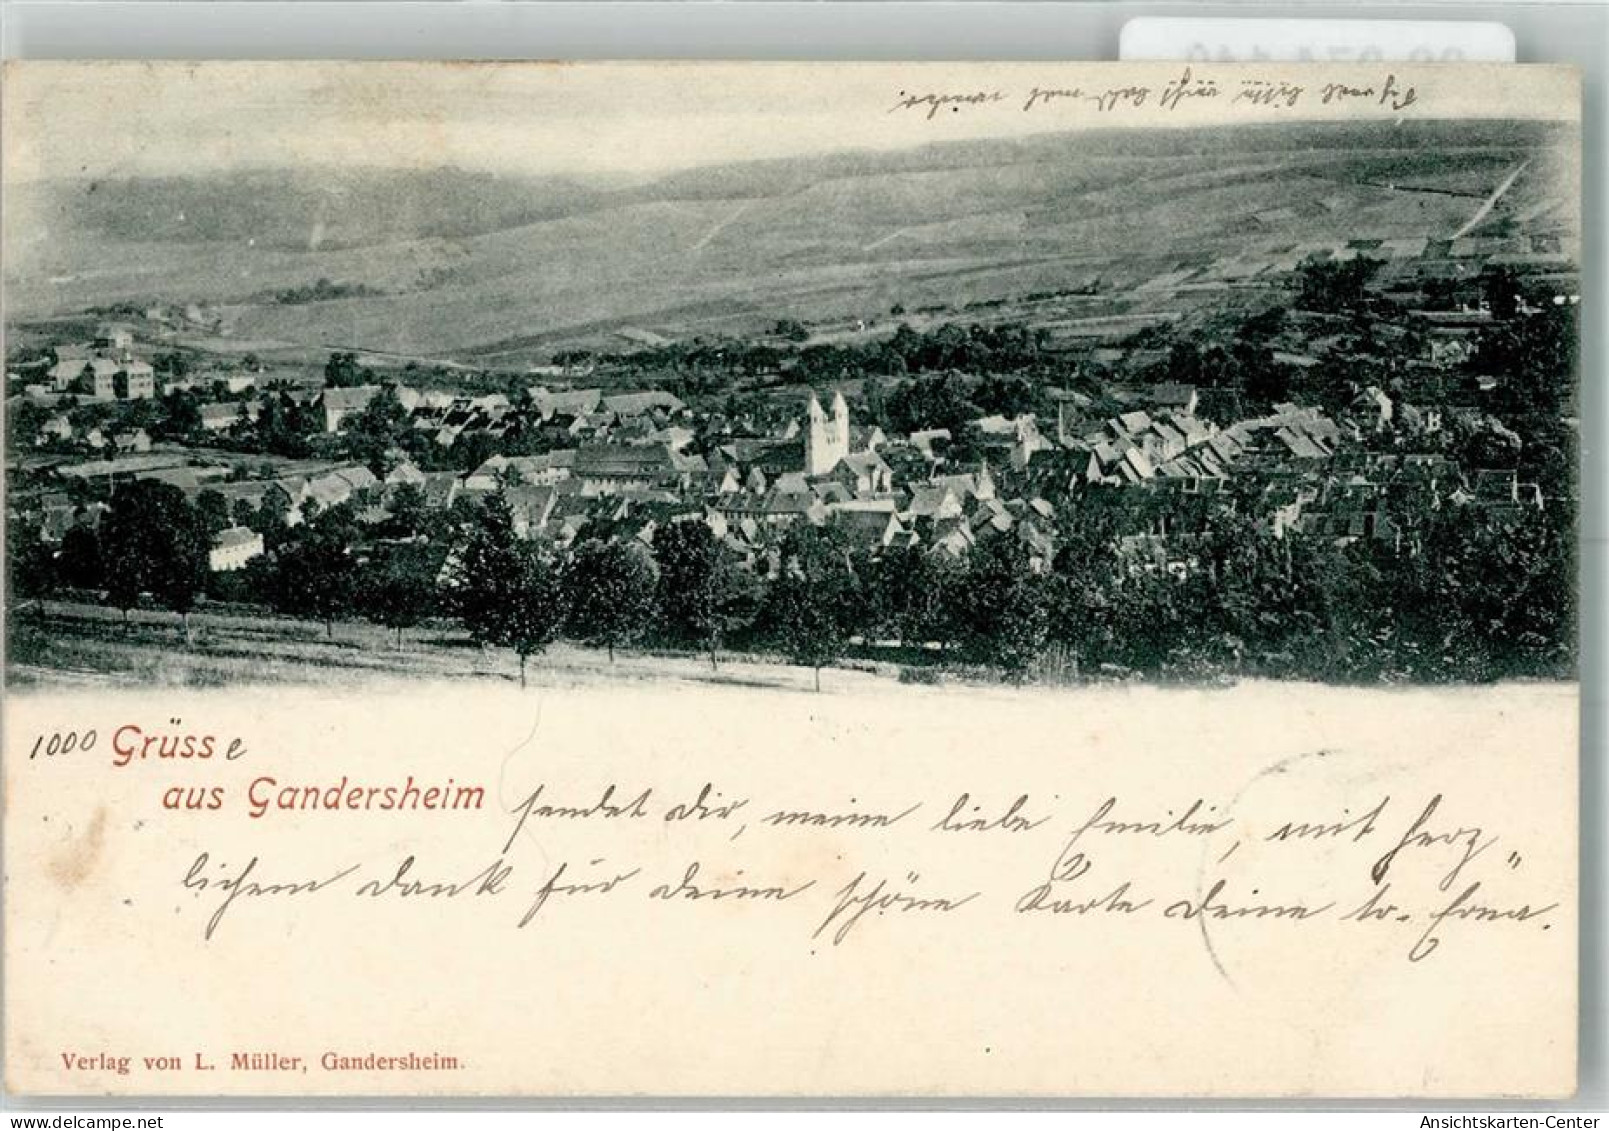 1000 Grüsse
aus Gandersheim sendet Dir, meine liebe Emilie, mit herz„
lichem Dank für Deine schöne Karte Deine tr. Erna.
Verlag von L. Müller, Gandersheim.
Ansichtskarten-Center